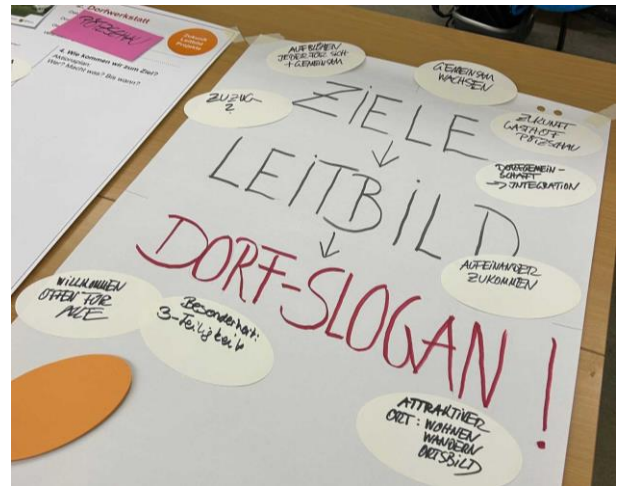 Dorfwerkstatt
PÖTZSCHAU
Zukunft
Leitbild
Projekte
4. Wie kommen wir zum Ziel?
Aktionsplan
Wer? Macht was? Bis wann?
AUFBLÜHEN
JEDER FÜR SICH
+ GEMEINSAM
GEMEINSAM
WACHSEN
ZUZUG
?
ZIELE
ZUKUNFT
GASTHOF
PÖTZSCHAU
LEITBILD
DORFGEMEIN-
SCHAFT
→ INTEGRATION
DORF-SLOGAN!
AUFEINANDER
ZUKOMMEN
WILLKOMMEN
OFFEN FÜR
ALLE
Besonderheit:
3-Teiligkeit
ATTRAKTIVER
ORT: WOHNEN
WANDERN
ORTSBILD